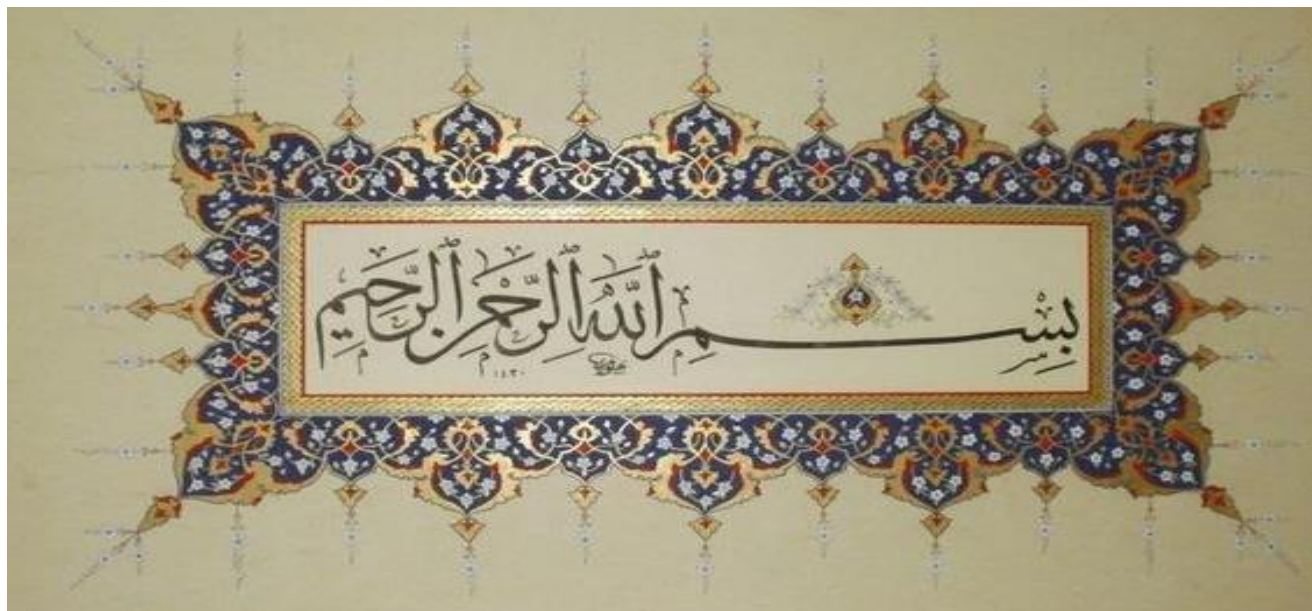 بِسْمِ ٱللَّهِ ٱلرَّحْمَنِ ٱلرَّحِيمِ
١٤٣٠